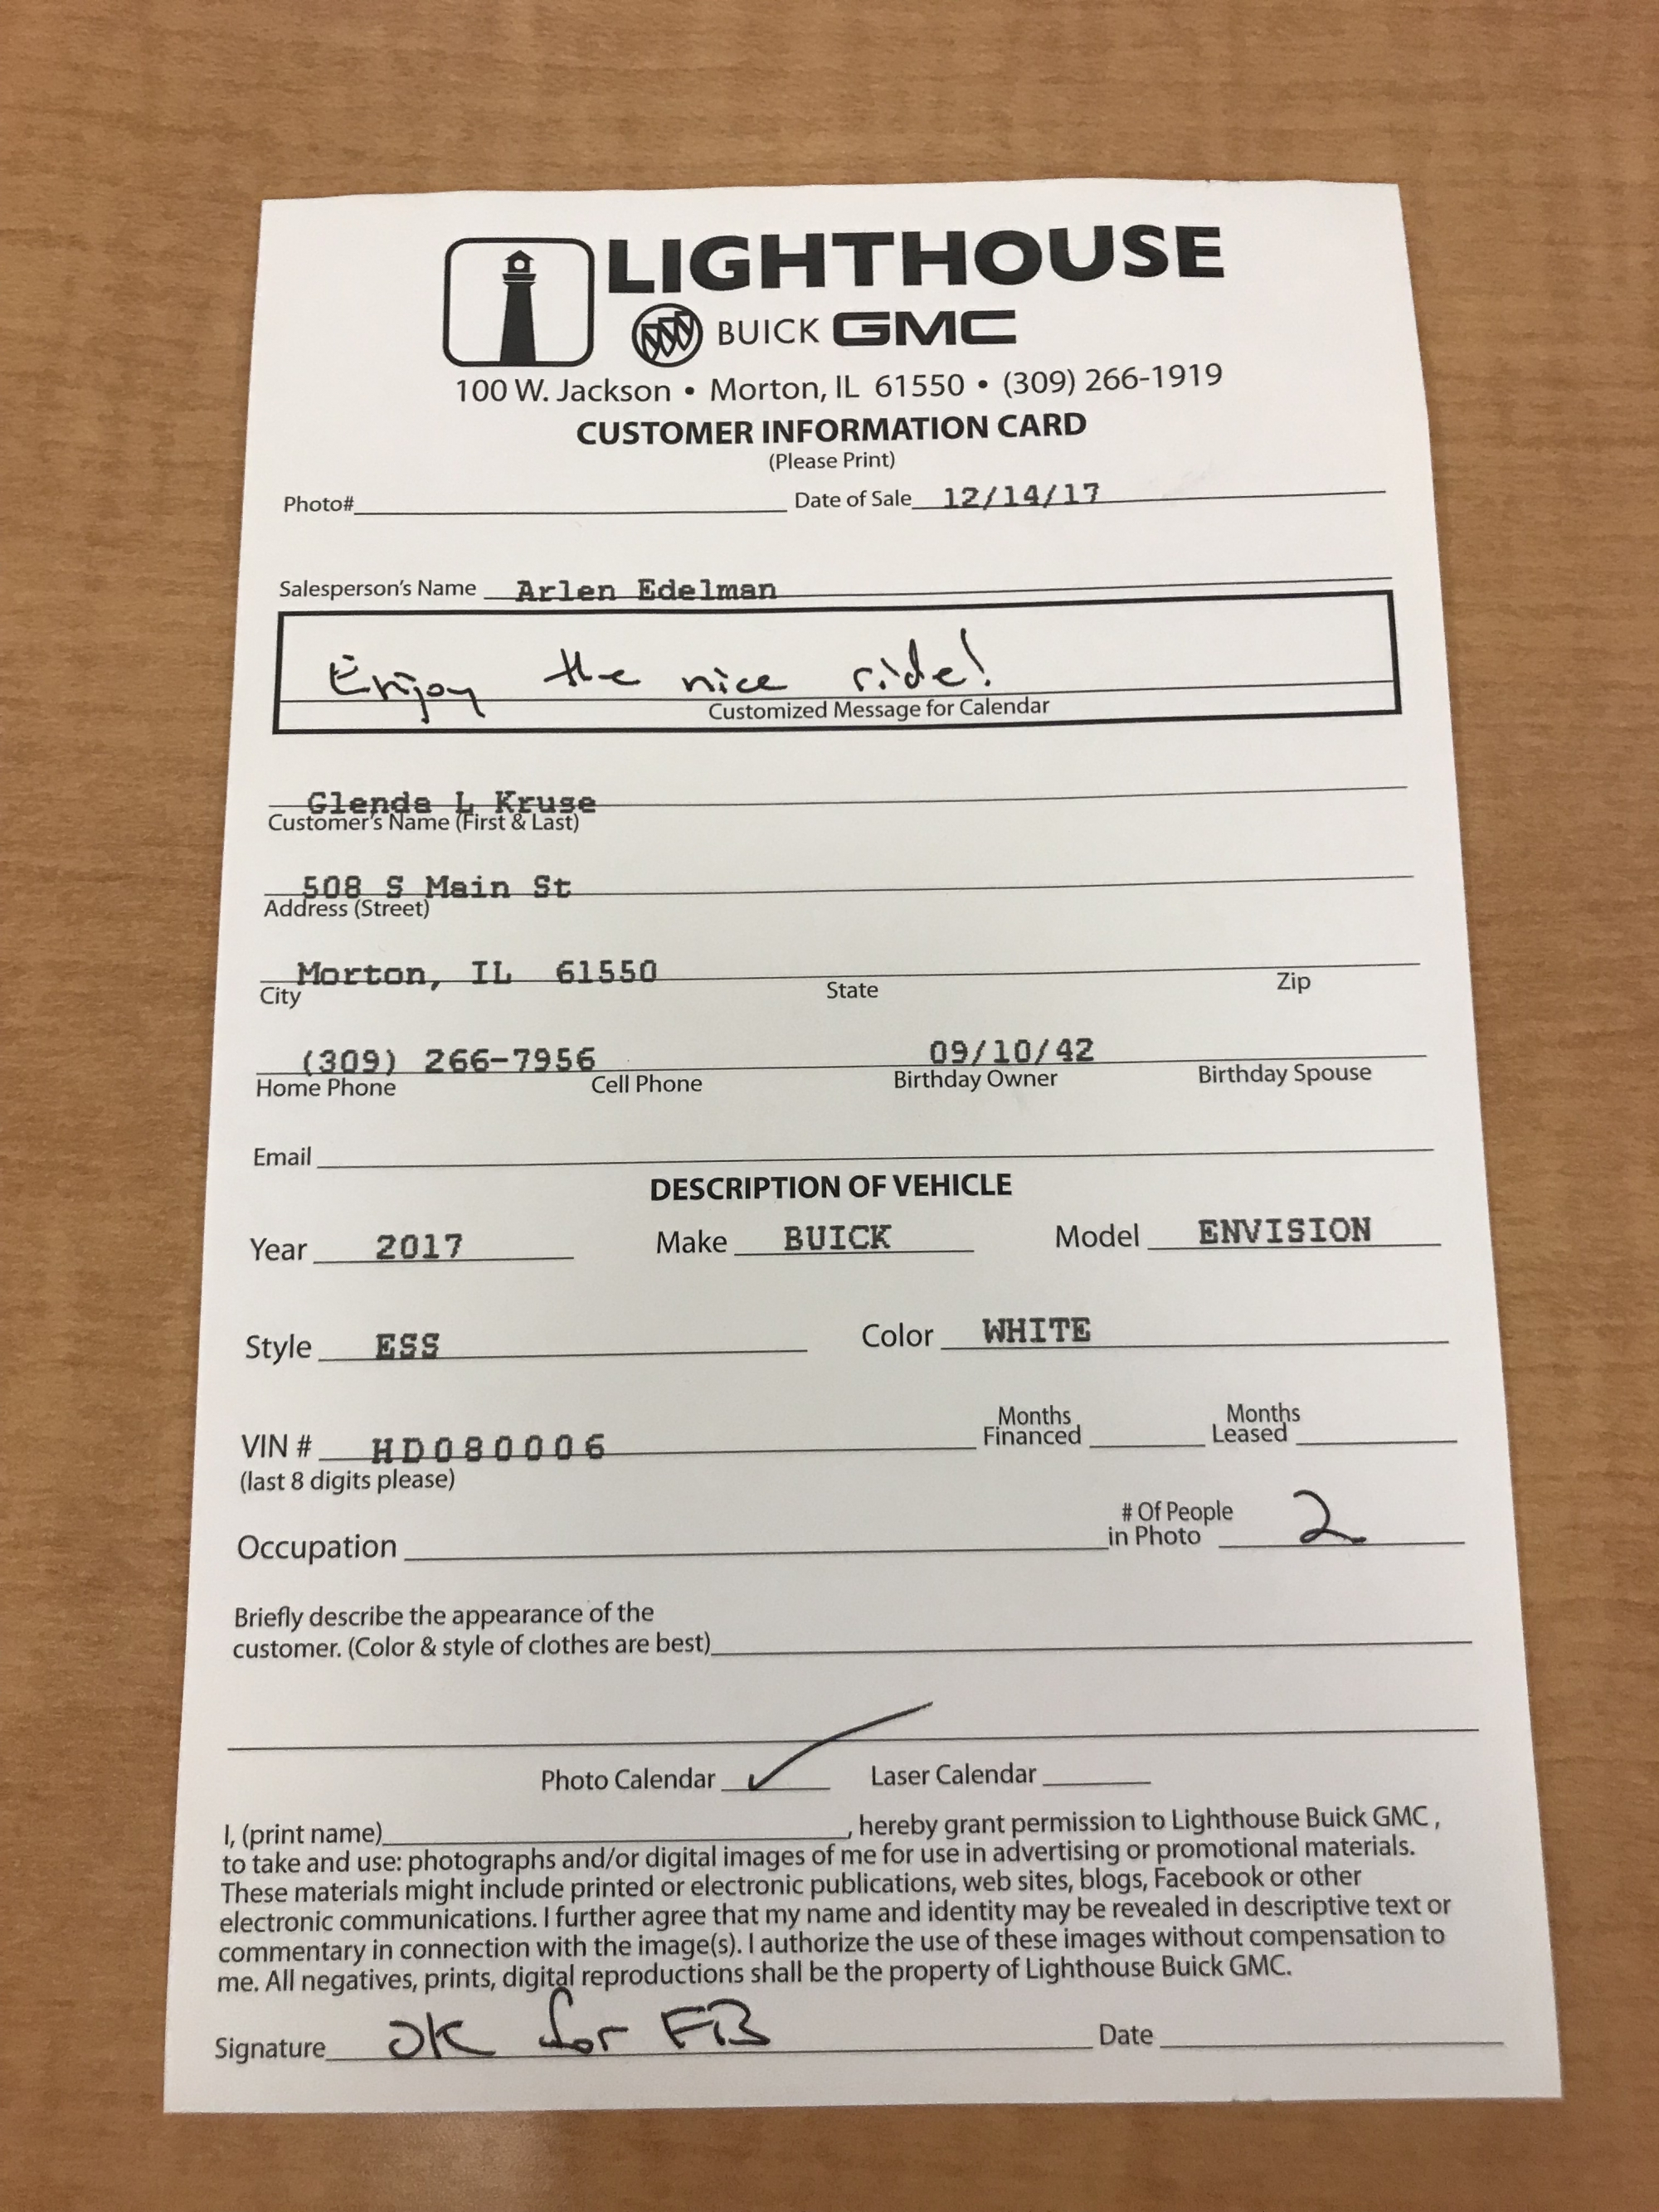 LIGHTHOUSE
BUICK GMC
100 W. Jackson • Morton, IL 61550 • (309) 266-1919
CUSTOMER INFORMATION CARD
(Please Print)
Photo# Date of Sale 12/14/17
Salesperson's Name Arlen Edelman
Enjoy the nice ride!
Customized Message for Calendar
Glenda L Kruse
Customer's Name (First & Last)
508 S Main St
Address (Street)
Morton, IL 61550
City State Zip
(309) 266-7956 09/10/42
Home Phone Cell Phone Birthday Owner Birthday Spouse
Email
DESCRIPTION OF VEHICLE
Year 2017 Make BUICK Model ENVISION
Style ESS Color WHITE
VIN # HD080006 Months Financed Months Leased
(last 8 digits please)
Occupation # Of People in Photo 2
Briefly describe the appearance of the
customer. (Color & style of clothes are best)
Photo Calendar ✓ Laser Calendar
I, (print name) , hereby grant permission to Lighthouse Buick GMC ,
to take and use: photographs and/or digital images of me for use in advertising or promotional materials.
These materials might include printed or electronic publications, web sites, blogs, Facebook or other
electronic communications. I further agree that my name and identity may be revealed in descriptive text or
commentary in connection with the image(s). I authorize the use of these images without compensation to
me. All negatives, prints, digital reproductions shall be the property of Lighthouse Buick GMC.
Signature OK for FB Date